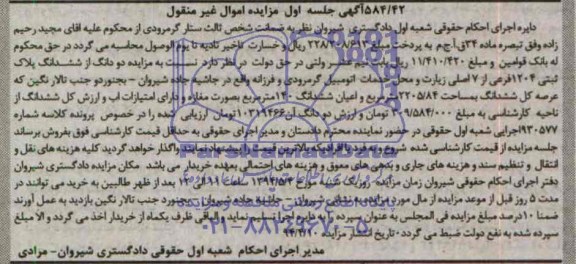 ۵۸۴/۴۲آگهی جلسه اول مزایده اموال غیر منقول
دایره اجرای احکام حقوقی شعبه اول دادگستری شیروان نظر به ضمانت شخص ثالث ستار گرمرودی از محکوم علیه آقای مجید رحیم
زاده وفق تبصره ماده ۲۴ق.آ.ج.م به پرداخت مبلغ ریال و خسارت تاخیر تادیه تا یوم الوصول محاسبه می گردد در حق محکوم
له بانک قوامین و مبلغ ۱۱/۴۱۰/۴۲۰ ریال بابت عشر دولتی در حق دولت در نظر دارد نسبت به مزایده دو دانگ از ششدانگ پلاک
ثبتی ۱۲۰۴ فرعی از ۷ اصلی زیارت و محل خدمات اتومبیل گرمرودی و فرزانه واقع در حاشیه جاده شیروان - بجنورد دو جنب تالار نگین که
عرصه کل ششدانگ بمساحت ۲۲۰۵/۸۴ مترمربع و اعیان ششدانگ ۱۴۰ مترمربع بصورت مغازه و دارای امتیازات آب و ارزش کل ششدانگ از
ناحیه کارشناسی به مبلغ ۳۰۹/۵۸۴/۰۰۰ تومان و ارزش دو دانگ آن تومان ارزیابی شده را در خصوص پرونده کلاسه شماره
۹۳۰۵۷۷اجرایی شعبه اول حقوقی در حضور نماینده محترم دادستان و مدیر اجرای حقوقی به حداقل قیمت کارشناسی فوق بفروش برساند
جلسه مزایده از قیمت کارشناسی شده شروع و به فرد یا افرادیکه بالاترین قیمت را پیشنهاد نمایند واگذار خواهد گردید کلیه هزینه های نقل و
انتقال و تنظیم سند و هزینه های جاری و بدهی های معوق و هزینه های احتمالی بعهده خریدار می باشد مکان مزایده دادگستری شیروان
دفتر اجرای احکام حقوقی شیروان زمان مزایده روز یک شنبه مورخ ساعت ۱۱ الی ۱۲ بعد از ظهر طالبین به خرید می توانند در
مدت ۵ روز قبل از موعد مزایده از مال مورد مزایده به نشانی شیروان - حاشیه جاده شیروان بجنورد جنب تالار نگین بازدید به عمل آورند
ضمنا ۱۰درصد مبلغ مزایده فی المجلس به عنوان سپرده به دایره اجرا تسلیم نماید و الباقی ظرف یکماه از خریدار اخذ می گردد والا مبلغ
سپرده شده به نفع دولت ضبط می گردد-تاریخ انتشار مزایده
مدیر اجرای احکام شعبه اول حقوقی دادگستری شیروان- مرادی
۰۲۱-۸۸۳۴۹۶۷۰-۵